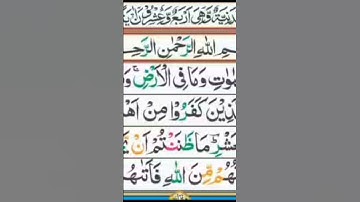 دَنِيَّةٌ وَّهِيَ اَرْبَعٌ وَّعِشْرُوْنَ اٰيَ
مِ اللّٰهِ الرَّحْمٰنِ الرَّحِ
مٰوٰتِ وَمَا فِي الْاَرْضِ ۚ وَ
ذِيْنَ كَفَرُوْا مِنْ اَهْ
شْرِ ؕ مَا ظَنَنْتُمْ اَنْ يَّ
هُمْ مِّنَ اللّٰهِ فَاَتٰىهُ